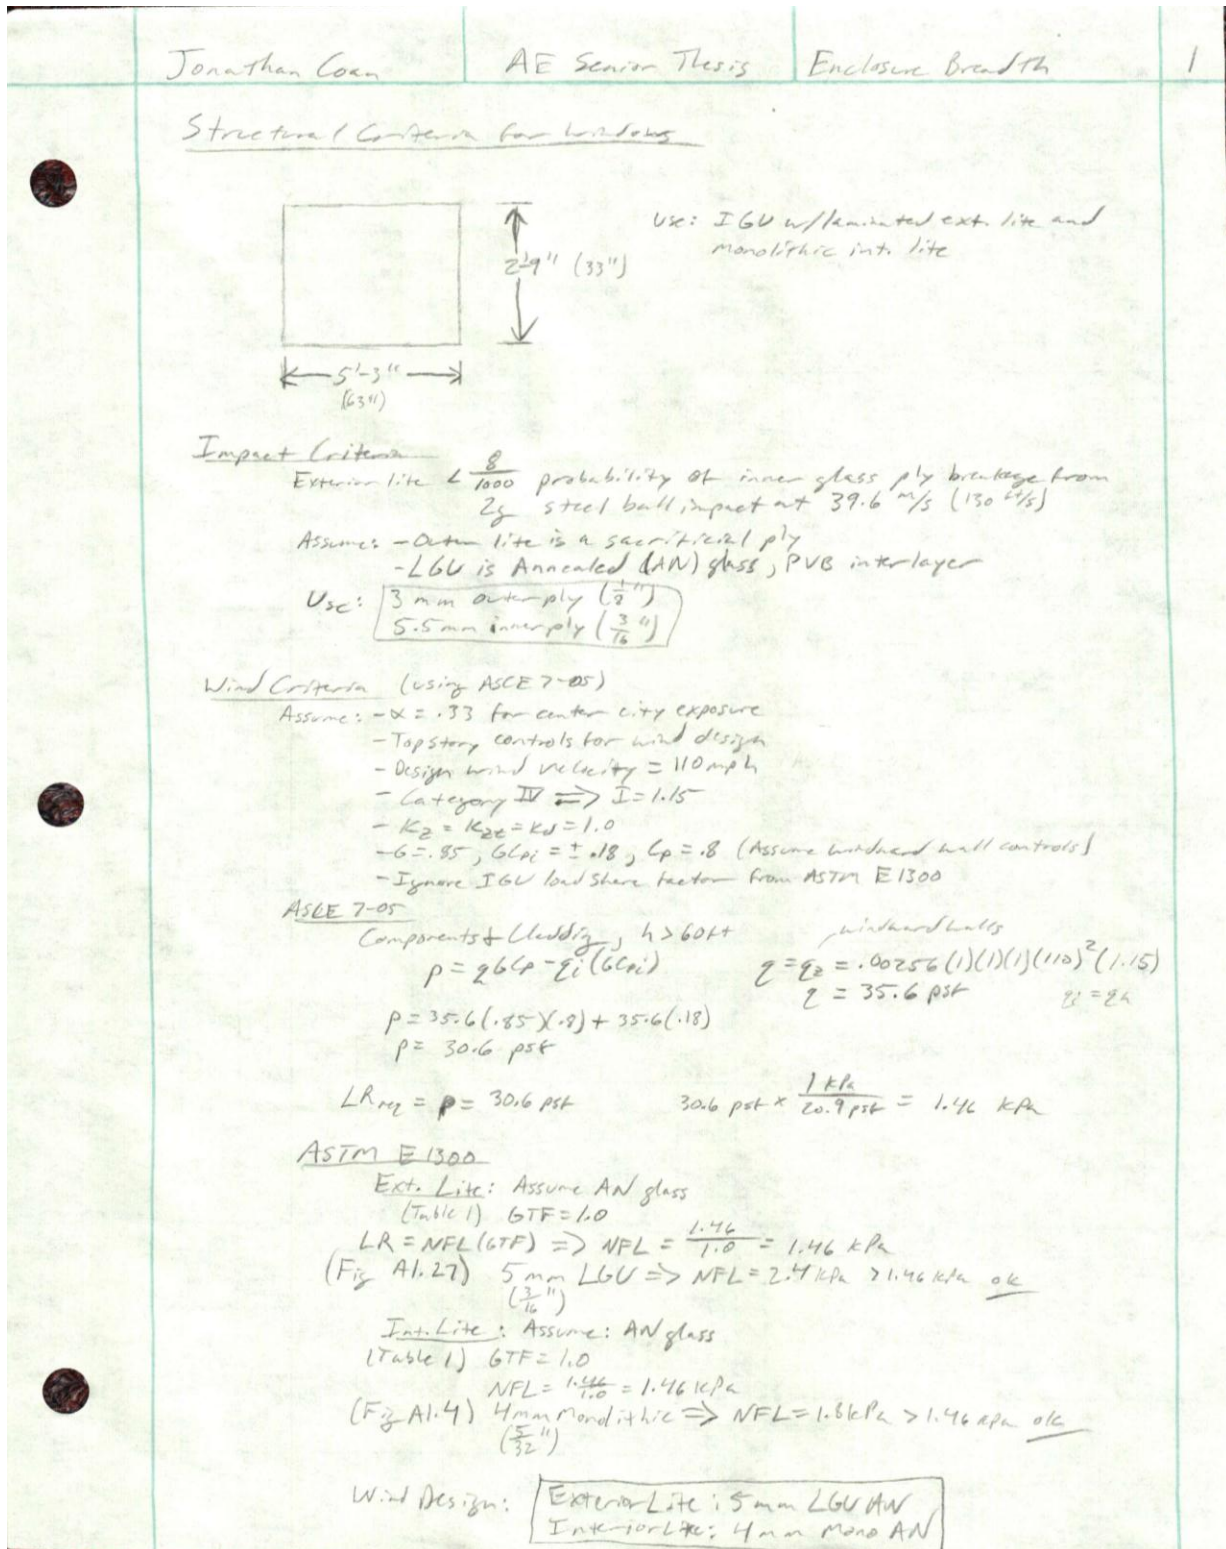 Jonathan Coan AE Senior Thesis Enclosure Breadth 1
Structural Criteria for Windows
Use: IGU w/laminated ext. lite and
monolithic int. lite
2'-9" (33")
5'-3"
(63")
Impact Criteria
Exterior lite < 8/1000 probability of inner glass ply breakage from
2g steel ball impact at 39.6 m/s (130 ft/s)
Assume: - Outer lite is a sacrificial ply
- LGU is Annealed (AN) glass, PVB interlayer
Use: 3 mm outer ply (1/8")
5.5 mm inner ply (3/16")
Wind Criteria (using ASCE 7-05)
Assume: - α = .33 for center city exposure
- Top story controls for wind design
- Design wind velocity = 110 mph
- Category IV => I = 1.15
- Kz = Kzt = Kd = 1.0
- G = .85, GCpi = ± .18, Cp = .8 (Assume windward wall controls)
- Ignore IGU load share factor from ASTM E1300
ASCE 7-05
Components & Cladding, h > 60ft windward walls
p = qGCp - qi(GCpi) q = qz = .00256 (1)(1)(1)(110)² (1.15)
q = 35.6 psf qi = qh
p = 35.6(.85)(.8) + 35.6(.18)
p = 30.6 psf
LRreq = p = 30.6 psf 30.6 psf × 1 kPa/20.9 psf = 1.46 kPa
ASTM E1300
Ext. Lite: Assume AN glass
(Table 1) GTF = 1.0
LR = NFL (GTF) => NFL = 1.46/1.0 = 1.46 kPa
(Fig A1.27) 5 mm LGU => NFL = 2.4 kPa > 1.46 kPa ok
(3/16")
Int. Lite: Assume: AN glass
(Table 1) GTF = 1.0
NFL = 1.46/1.0 = 1.46 kPa
(Fig A1.4) 4mm Monolithic => NFL = 1.8 kPa > 1.46 kPa ok
(5/32")
Wind Design: Exterior Lite: 5 mm LGU AN
Interior Lite: 4 mm Mono AN